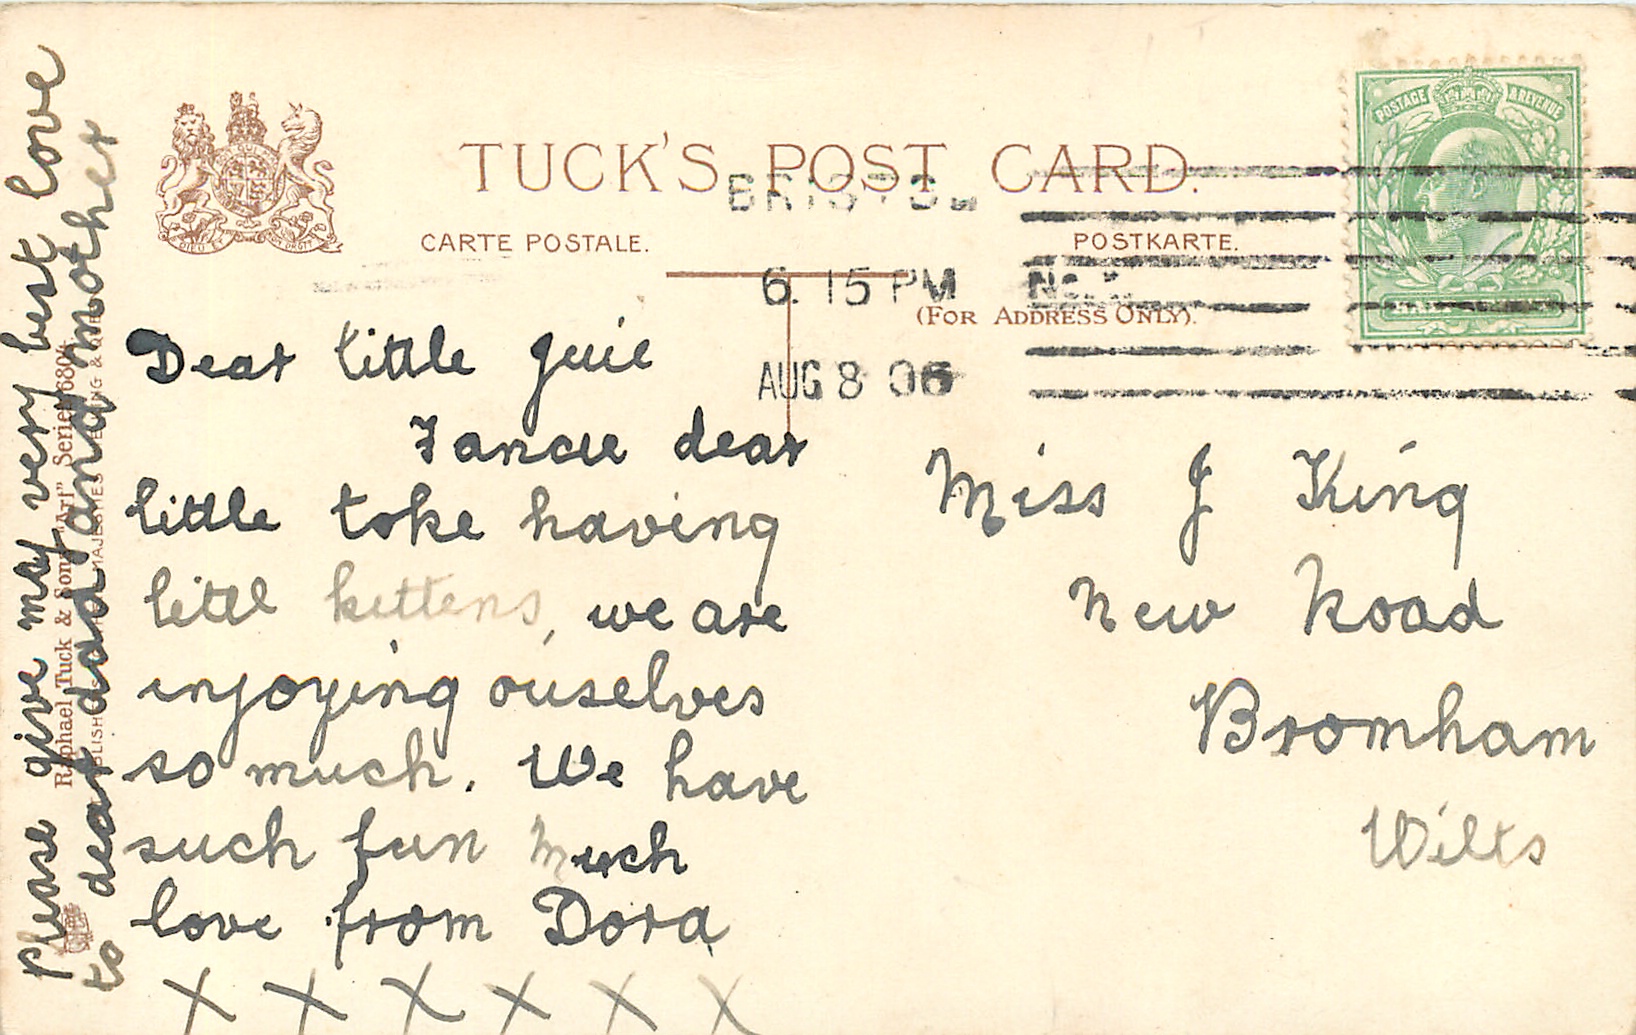 TUCK'S POST CARD.
CARTE POSTALE.
POSTKARTE.
(FOR ADDRESS ONLY).
BRISTOL
6. 15 PM
AUG 8 06
POSTAGE & REVENUE
Dear little Juie
Fancie dear
little toke having
littl kittens, we are
injoying ouselves
so much. We have
such fun Much
love from Dora
X X X X X X
Please give may very best love
to dear dad and mother
Miss J King
New Road
Bromham
Wilts
Raphael Tuck & Sons "Art" Series 6804